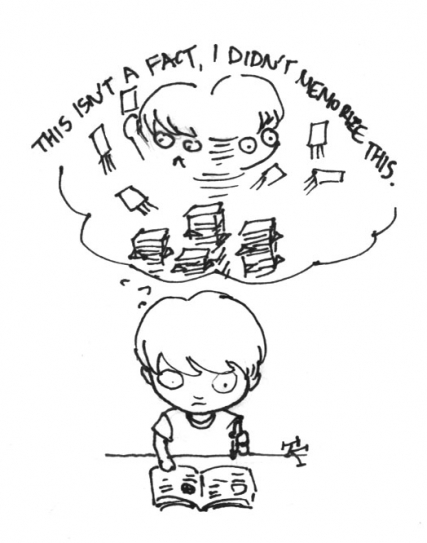 THIS ISN'T A FACT, I DIDN'T MEMORIZE THIS.